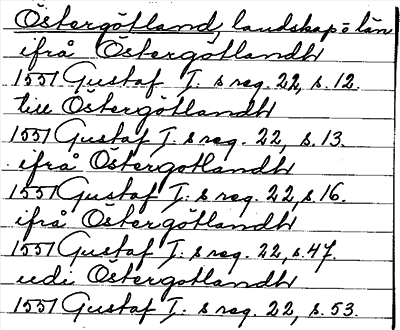 Östergötland, landskap o län
ifrå Östergötlandh
1551 Gustaf I:s reg. 22, s. 12.
till Östergötlandh
1551 Gustaf I:s reg. 22, s. 13.
ifrå Östergotlandh
1551 Gustaf I:s reg. 22, s. 16.
ifrå Östergötlandh
1551 Gustaf I:s reg. 22, s. 47.
udi Östergotlandh
1551 Gustaf I:s reg. 22, s. 53.